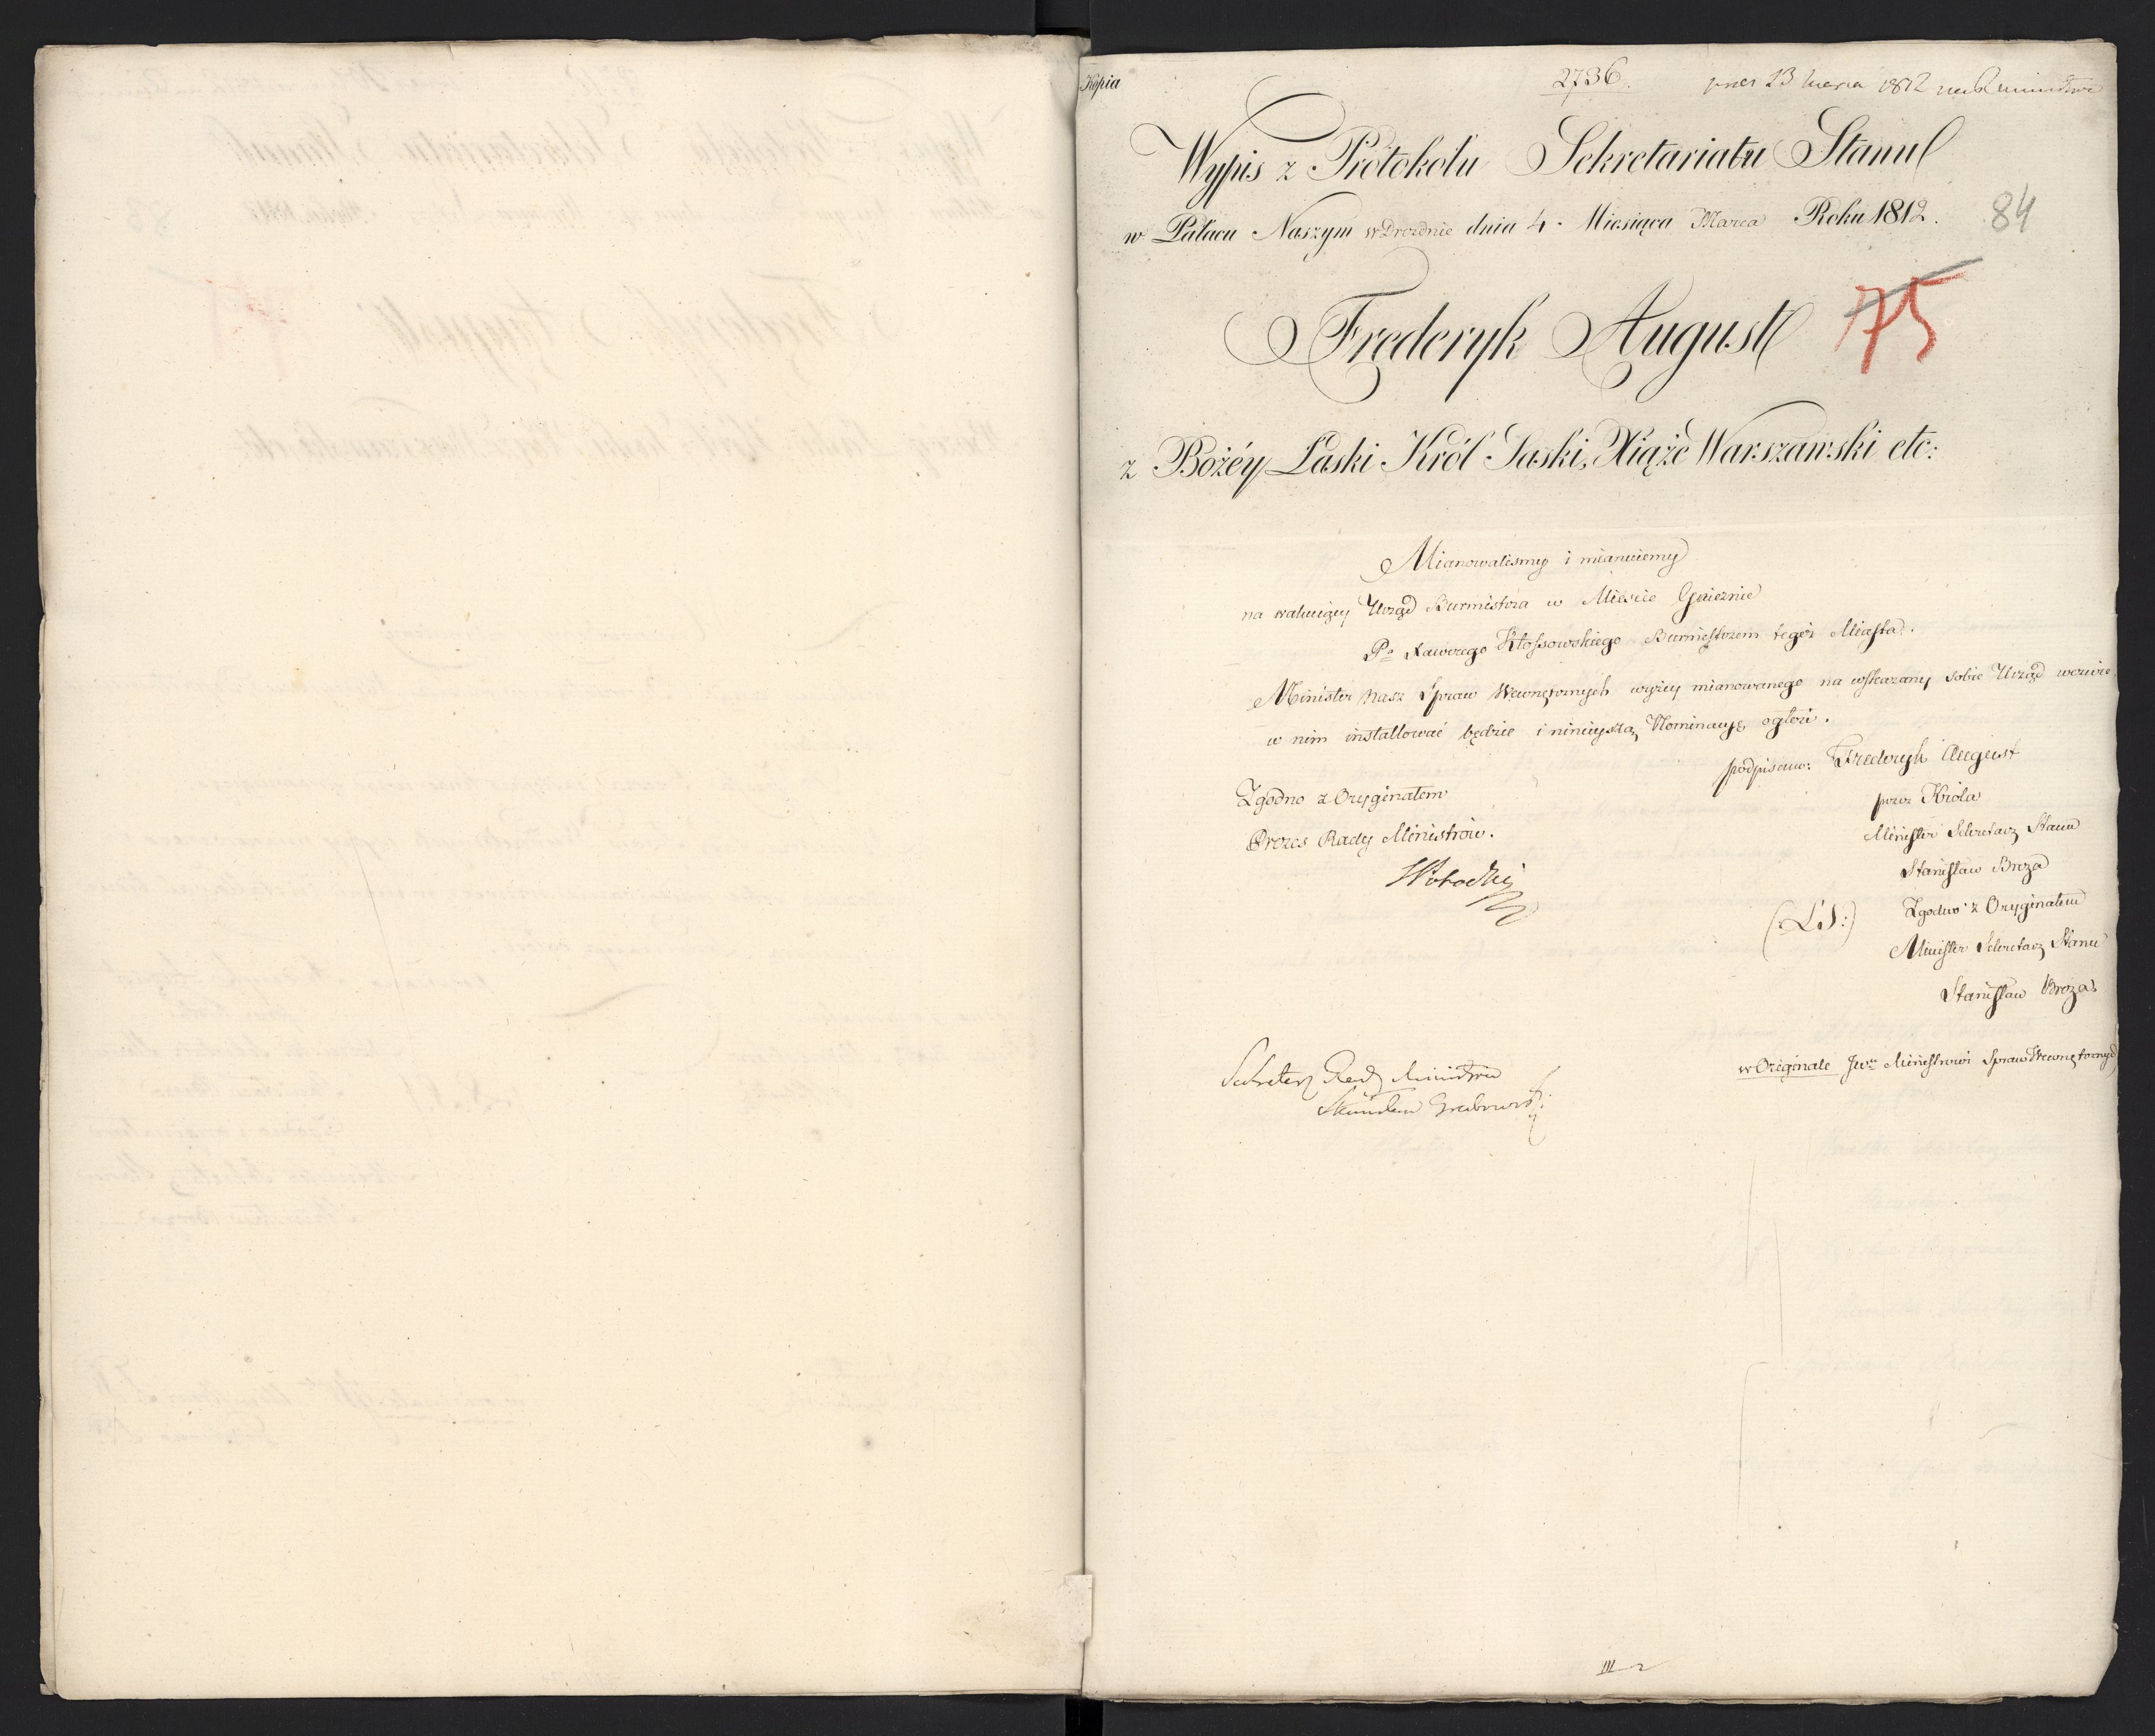 Kopia
2736. 23 Marca 1812
Wypis z Protokołu Sekretariatu Stanu
w Pałacu Naszym w Dreznie dnia 4. Miesiąca Marca Roku 1812.
84
Frederyk August
75
z Bożéy Łaski Król Saski, Xiąże Warszawski etc:
Mianowalismy i mianuiemy
na wakuiący Urząd Burmistrza w Mieście Gnieznie
Pa Xawerego Kłossowskiego Burmistrzem tegoż Miasta.
Minister Nasz Spraw Wewnętrznych wyżey mianowanego na wskazany sobie Urząd wezwie,
w nim installować będzie i ninieyszą Nominacyę ogłosi.
podpisano: Frederyk August
Zgodno z Oryginałem
przez Króla
Prezes Rady Ministrów.
Minister Sekretarz Stanu
Stanisław Breza
(LS:)
Zgodno z Oryginałem
Minister Sekretarz Stanu
Stanisław Breza
Sekretarz Rady Ministrów
Stanisław Grabowski
w Oryginale JWu Ministrowi Spraw Wewnętrznych
III